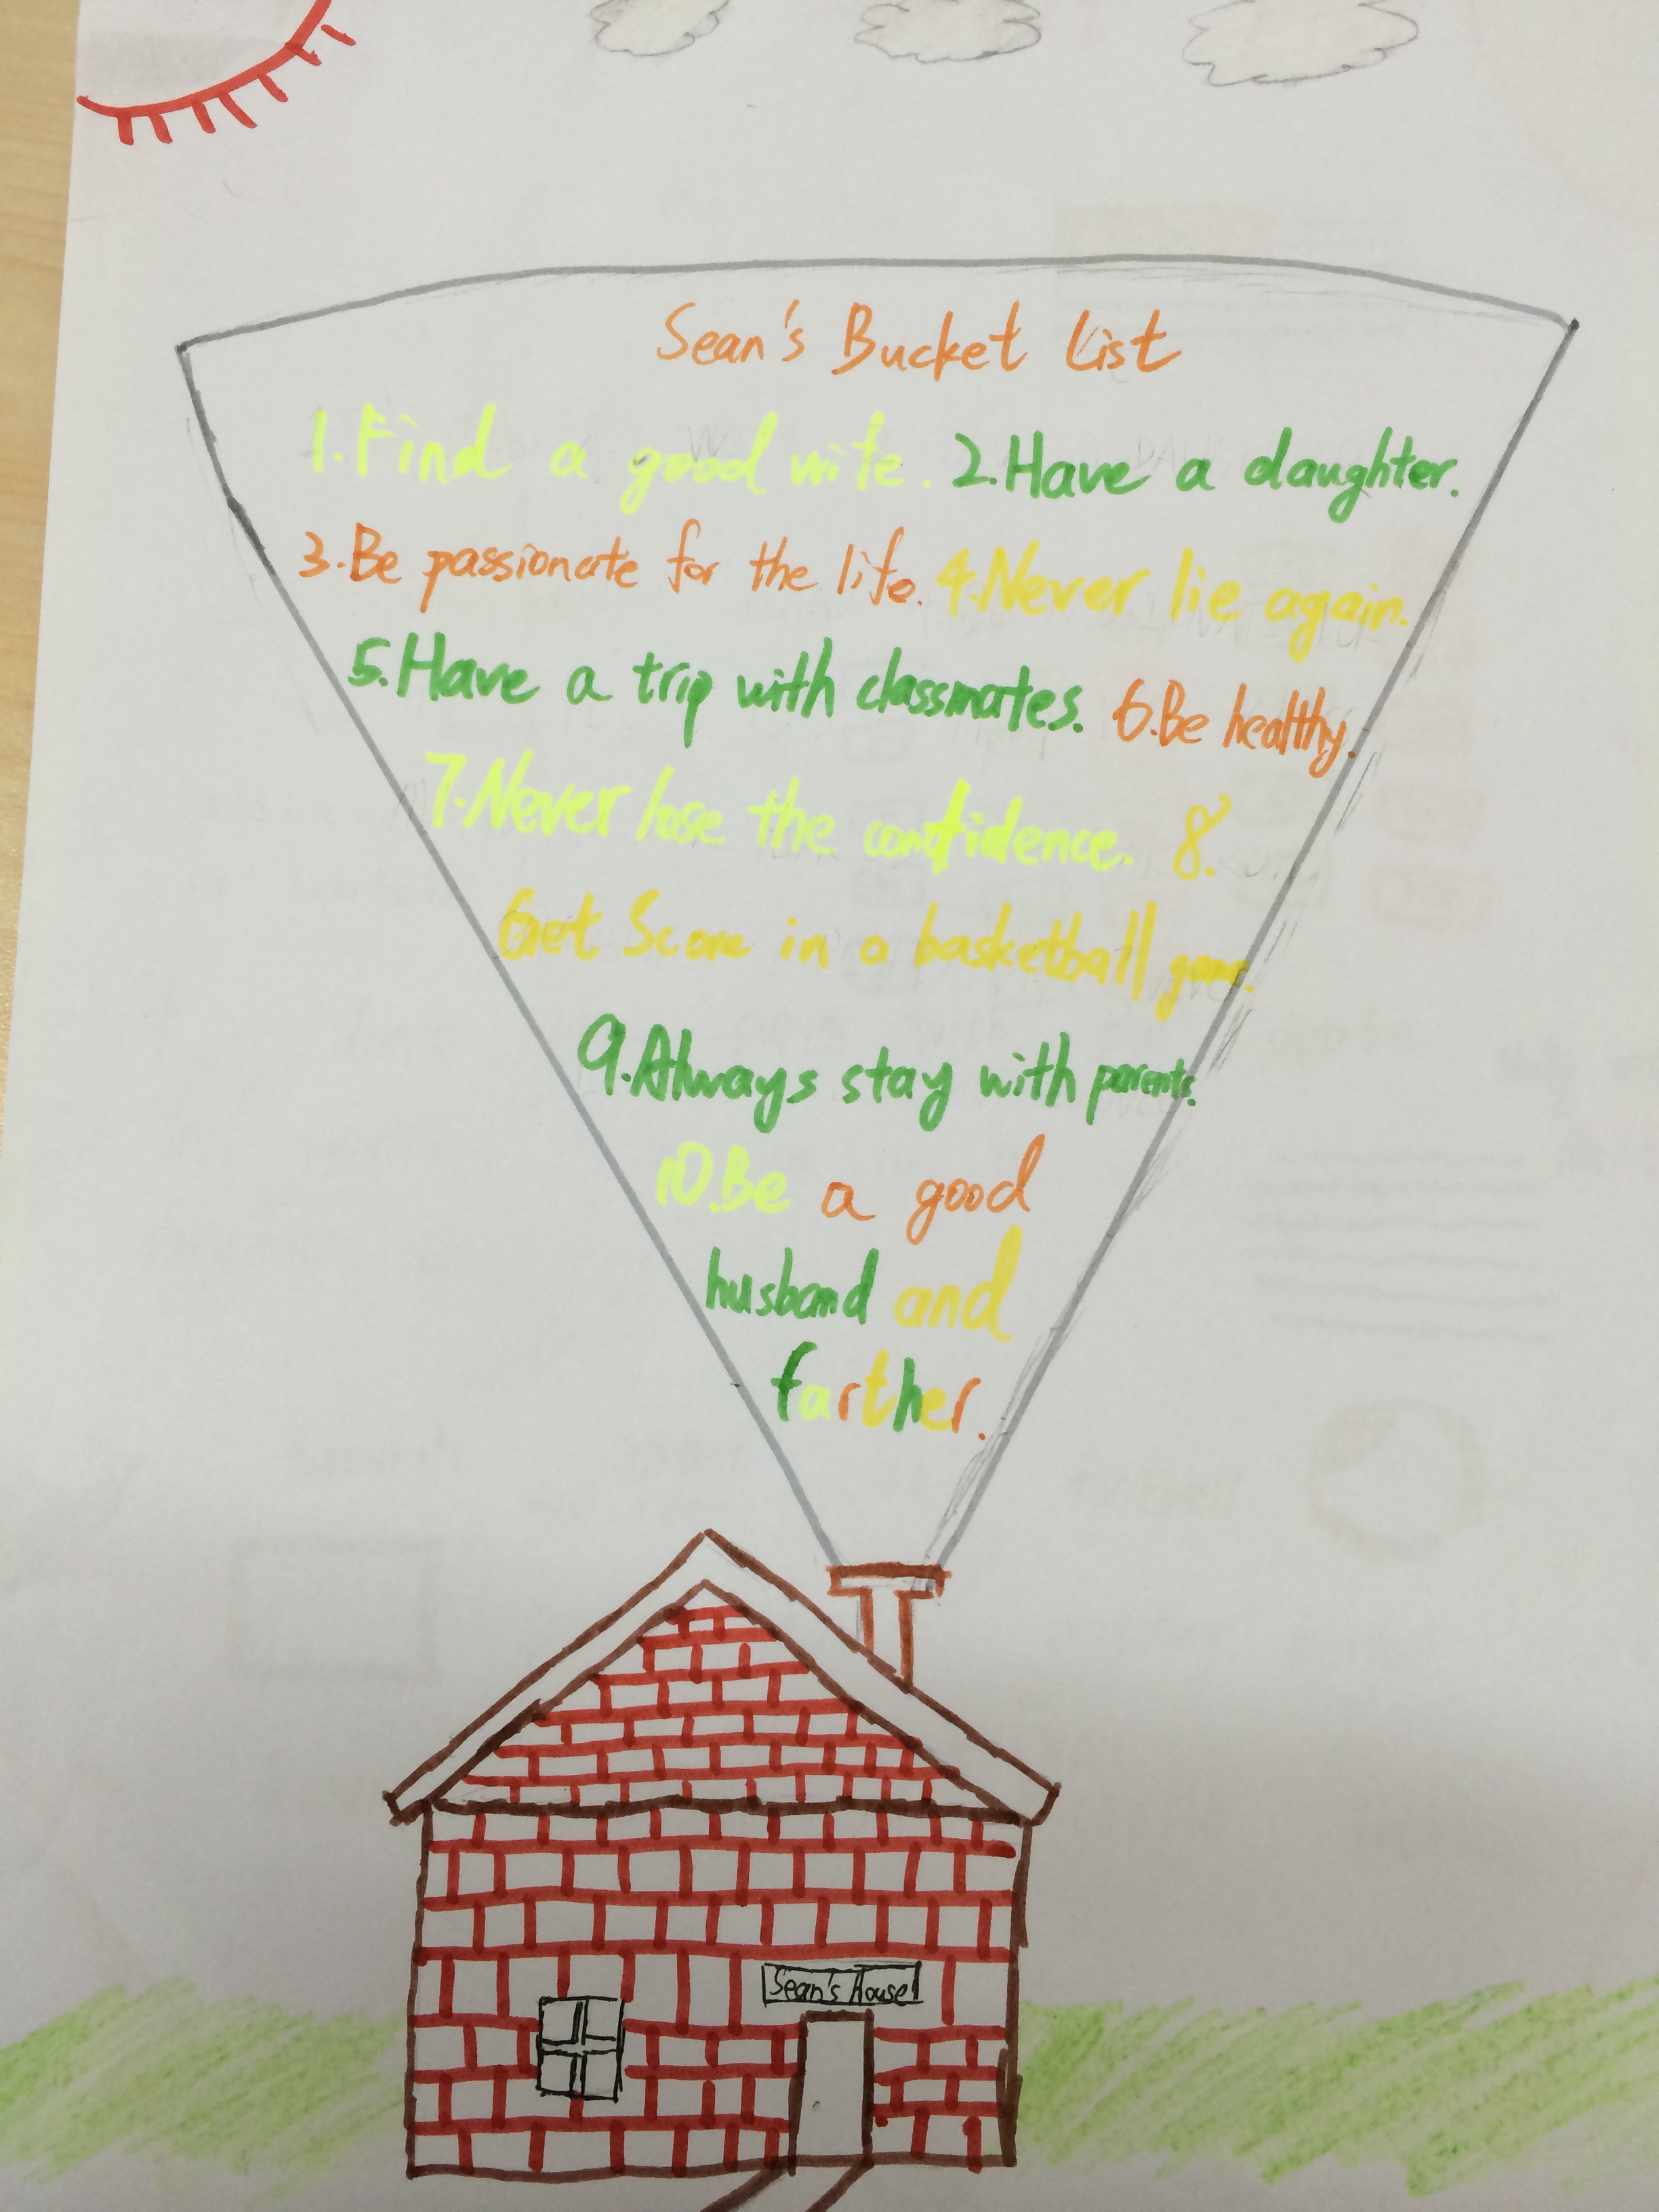 Sean's Bucket List
1.Find a good wife. 2.Have a daughter.
3.Be passionate for the life. 4.Never lie again.
5.Have a trip with classmates. 6.Be healthy.
7.Never lose the confidence. 8.
Get Score in a basketball game.
9.Always stay with parents.
10.Be a good
husband and
farther.
Sean's House